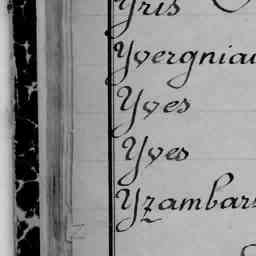 Yris
Yvergniau
Yves
Yves
Yzambar